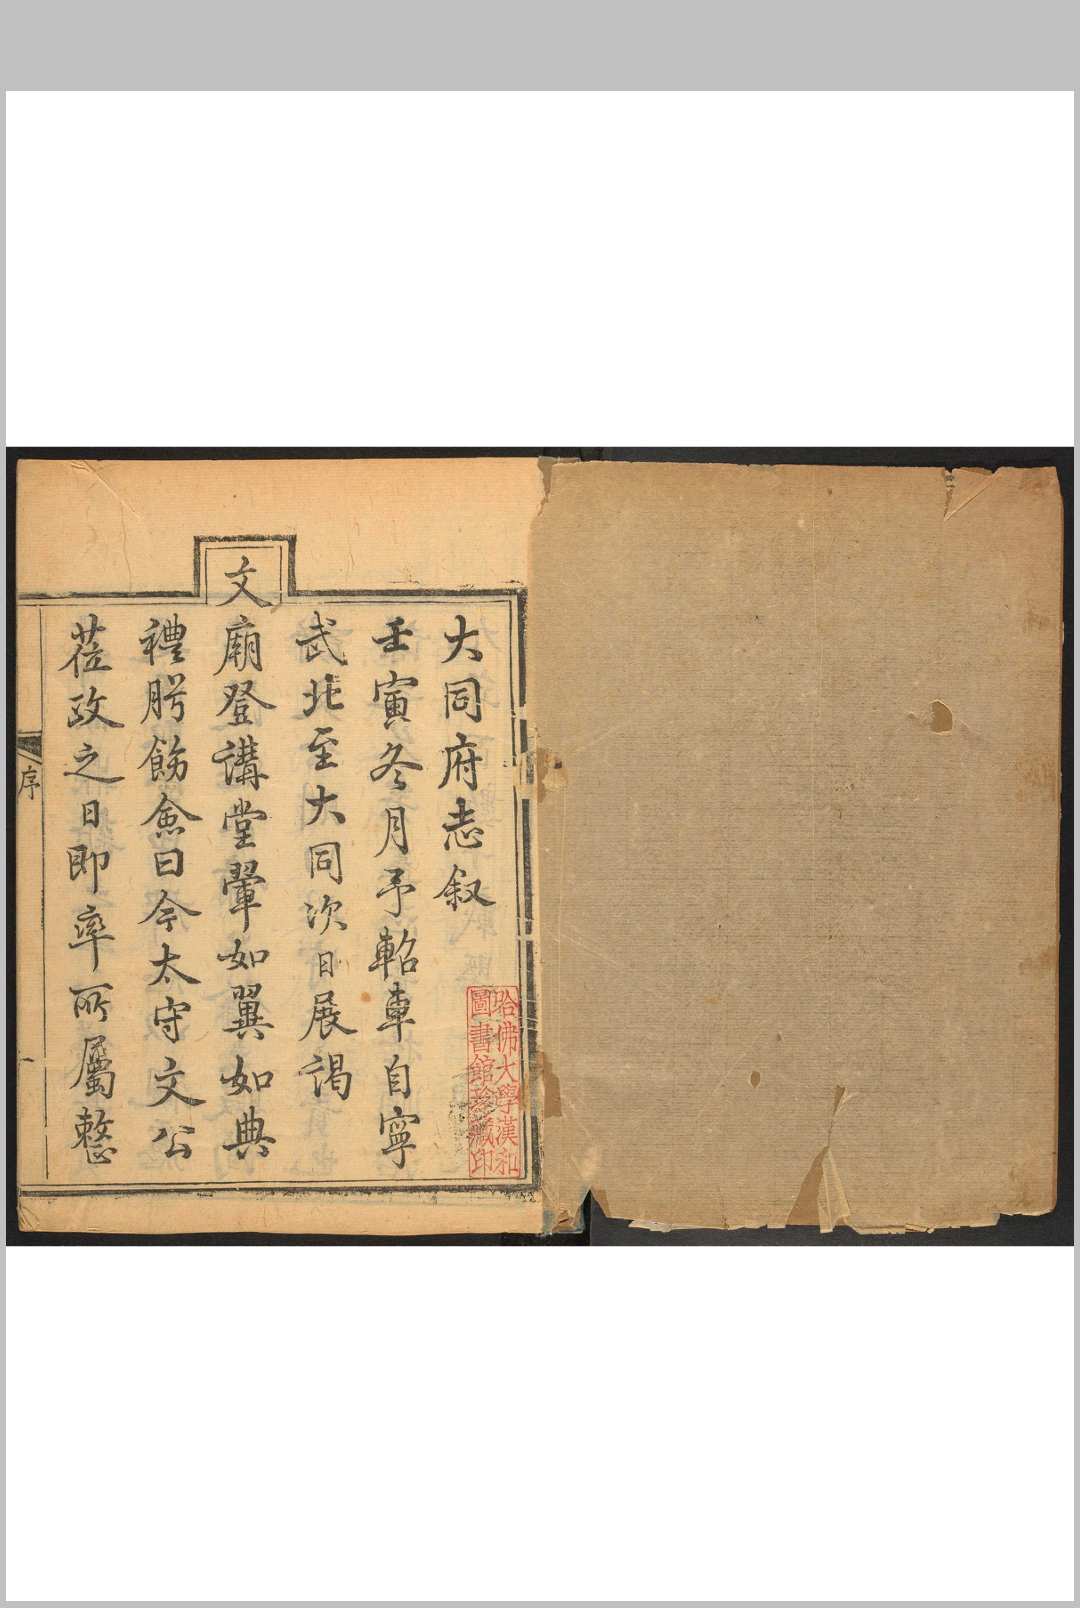 大同府志叙
壬寅冬月予軺車自寧
武北至大同次日展謁
文廟登講堂翬如翼如典
禮腭餝僉曰今太守文公
莅政之日即率所屬整
序
一
哈佛大學漢和
圖書館珍藏印